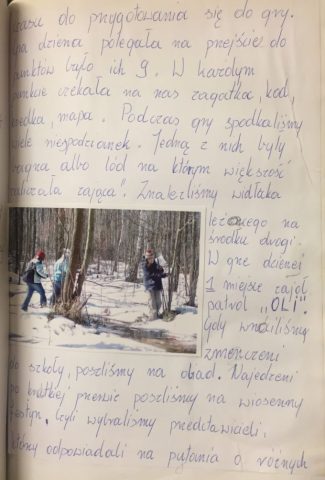 czasu do przygotowania się do gry.
dzienna polegała na przejście do
punktów było ich 9. W każdym
punkcie czekała na nas zagadka, kod,
mapa. Podczas gry spotkaliśmy
wiele niespodzianek. Jedną z nich były
bagna albo lód na którym większość
zaliczała zająca". Znaleźliśmy widłaka
leżącego na
środku drogi.
W grze dziennej
1 miejsce zajął
patrol „OLI".
Gdy wróciliśmy
zmęczeni
do szkoły, poszliśmy na obiad. Najedzeni
po krótkiej przerwie poszliśmy na wiosenny
festyn, czyli wybraliśmy przedstawicieli,
którzy odpowiadali na pytania o różnych